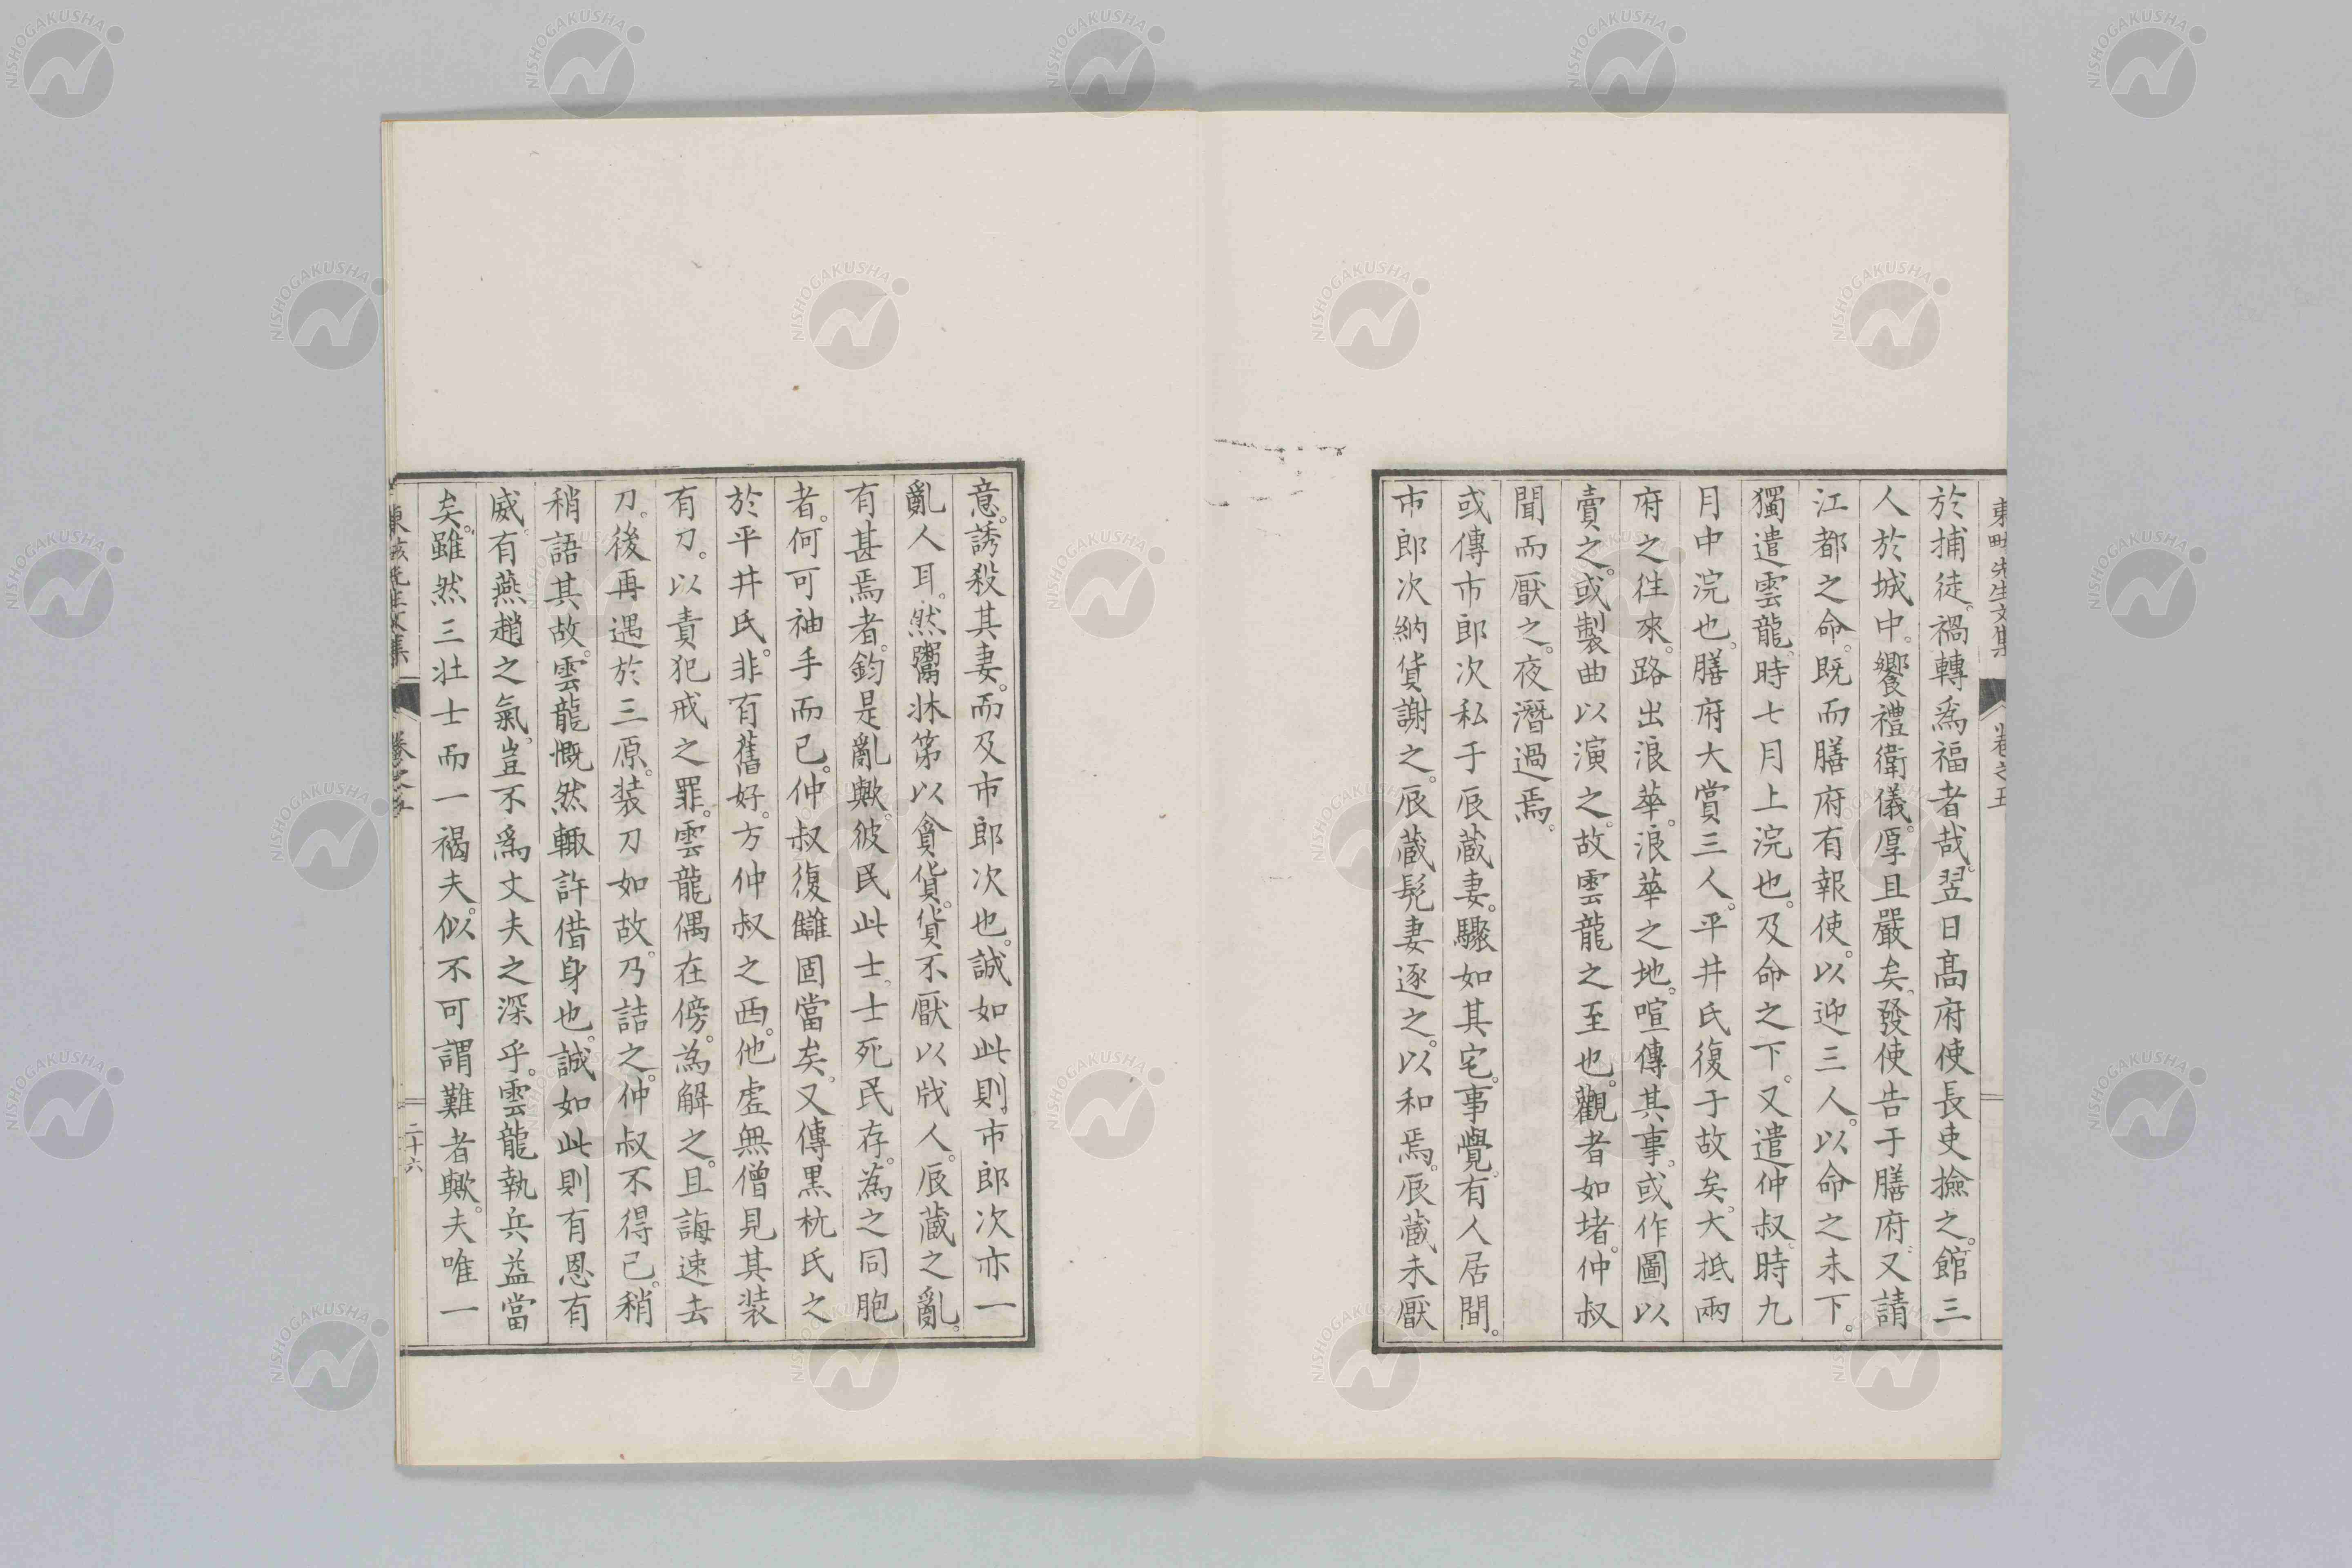 於捕徒。禍轉爲福者哉。翌日高府使長吏撿之。館三
人於城中。饗禮衛儀。厚且嚴矣。發使告于膳府。又請
江都之命。既而膳府有報使。以迎三人。以命之未下。
獨遣雲龍。時七月上浣也。及命之下。又遣仲叔。時九
月中浣也。膳府大賞三人。平井氏復于故矣。大抵兩
府之往來。路出浪華。浪華之地。喧傳其事。或作圖以
賣之。或製曲以演之。故雲龍之至也。觀者如堵。仲叔
聞而厭之。夜潛過焉。
或傳市郎次私于辰蔵妻。驟如其宅。事覺。有人居間。
市郎次納貨謝之。辰蔵髡妻逐之。以和焉。辰蔵未厭
東畡先生文集
卷之五
意。誘殺其妻。而及市郎次也。誠如此則市郎次亦一
亂人耳。然鬻牀第以貪貨。貨不厭以戕人。辰蔵之亂。
有甚焉者。鈞是亂歟。彼民此士。士死民存。為之同胞
者。何可袖手而已。仲叔復讎固當矣。又傳黒杭氏之
於平井氏。非有舊好。方仲叔之西。他虚無僧見其装
有刀。以責犯戒之罪。雲龍偶在傍。為解之。且誨速去
刀。後再遇於三原。装刀如故。乃詰之。仲叔不得已。稍
稍語其故。雲龍慨然輙許借身也。誠如此則有恩有
威。有燕趙之氣。豈不爲丈夫之深乎。雲龍執兵益當
矣。雖然三壮士而一褐夫。似不可謂難者歟。夫唯一
東畡先生文集
卷之五
二十六
NISHOGAKUSHA